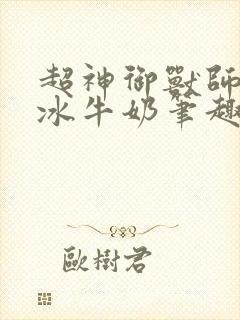 超神御獸師
冰牛奶筆趣
歐樹君